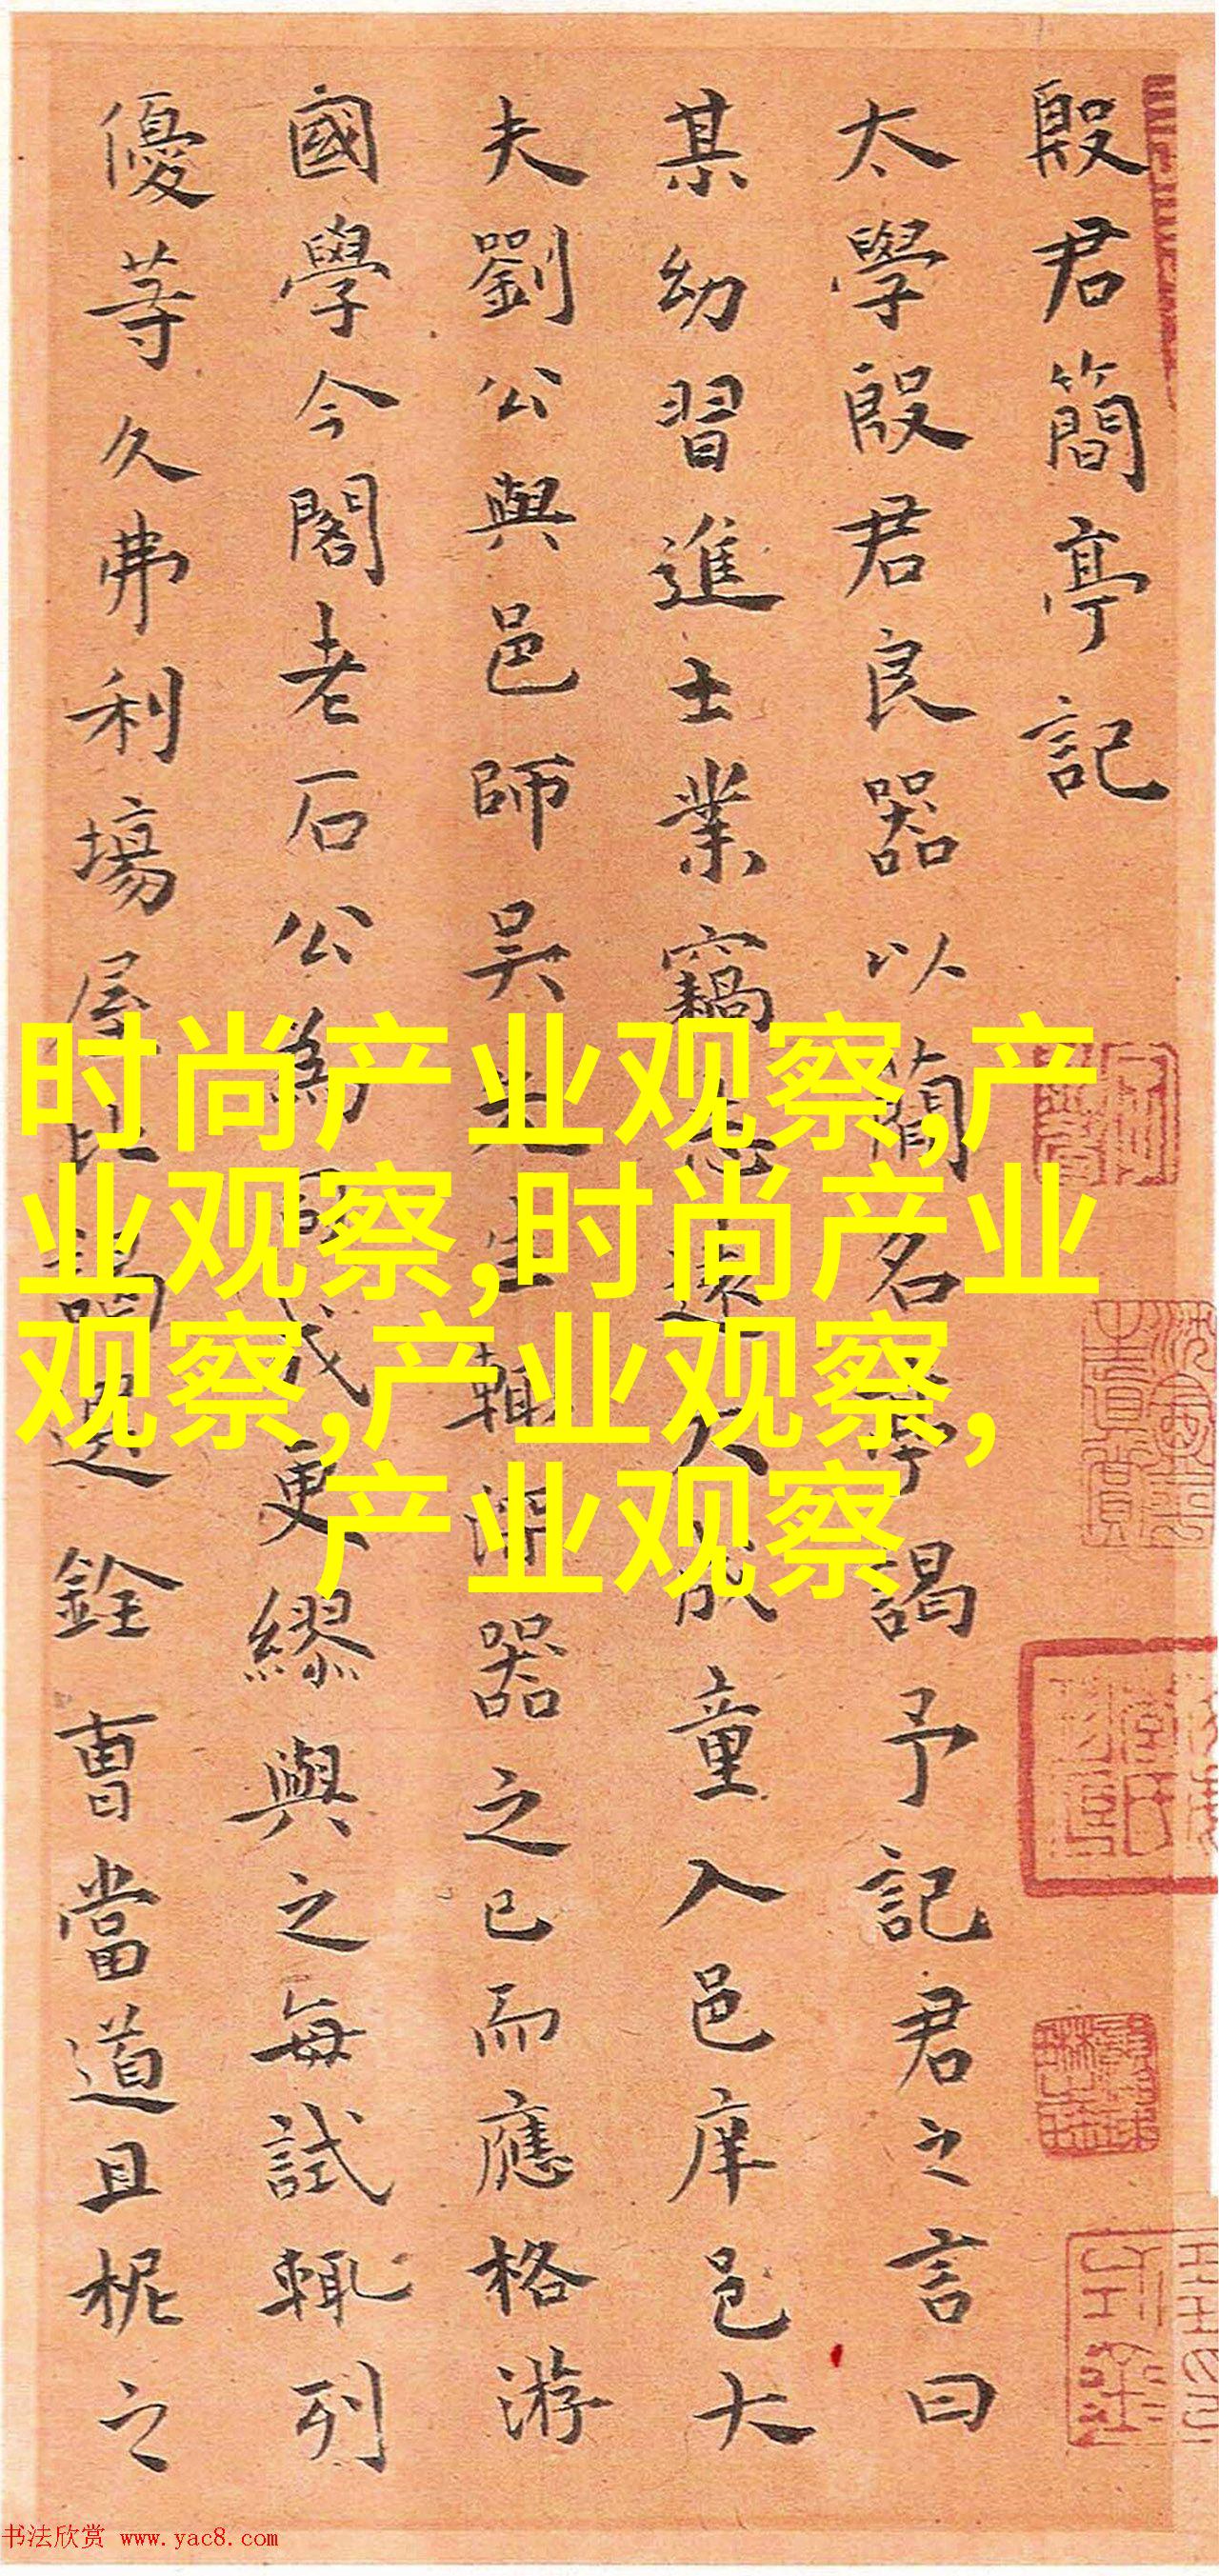 殷君簡亭記
太學殷君良器以簡名亭謁予記君之言曰
某幼習進士業竊志遠大成童入邑庠邑大
夫劉公與邑師吳先生輒深器之已而應格游
國學今閣老石公為司成更繆與之每試輒列
優等久弗利場屋比謁選銓曹當道且柅之
时尚产业观察,产
业观察,时尚产业
观察,产业观察,
产业观察
书法欣赏 www.yac8.com